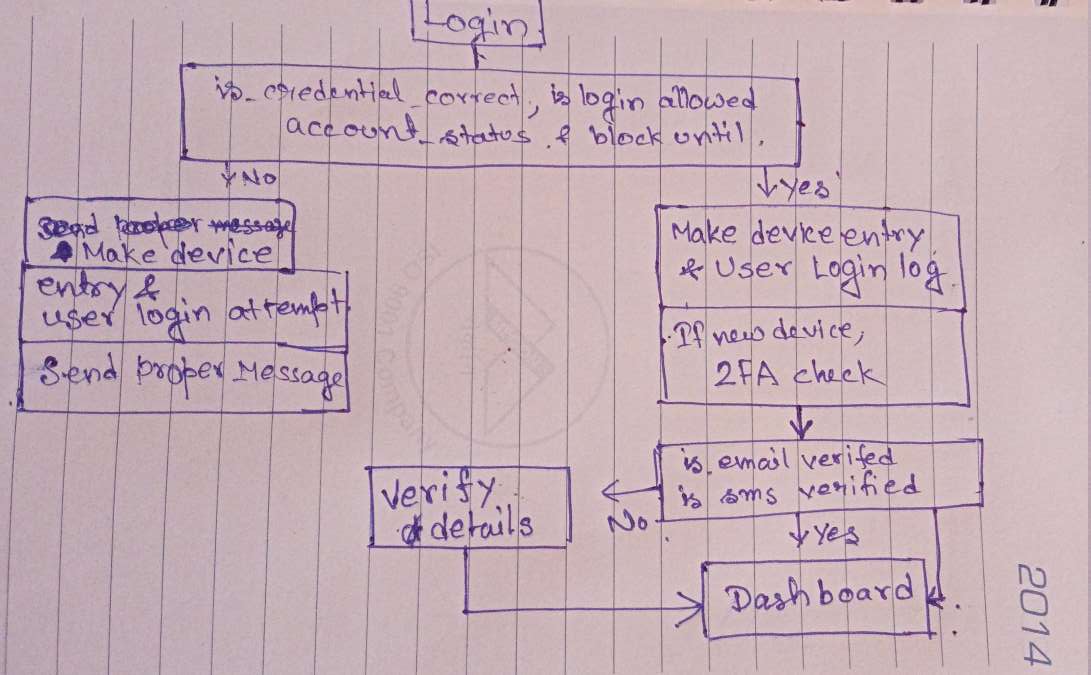 Login
is_credential_correct, is login allowed
account_status & block until.
No
Yes
Send proper message
Make device
entry &
user login attempt
Send proper Message
Make device entry
& User Login log.
If new device,
2FA check
is_email verifed
is sms verified
No
Yes
Verify
details
Dashboard
2014